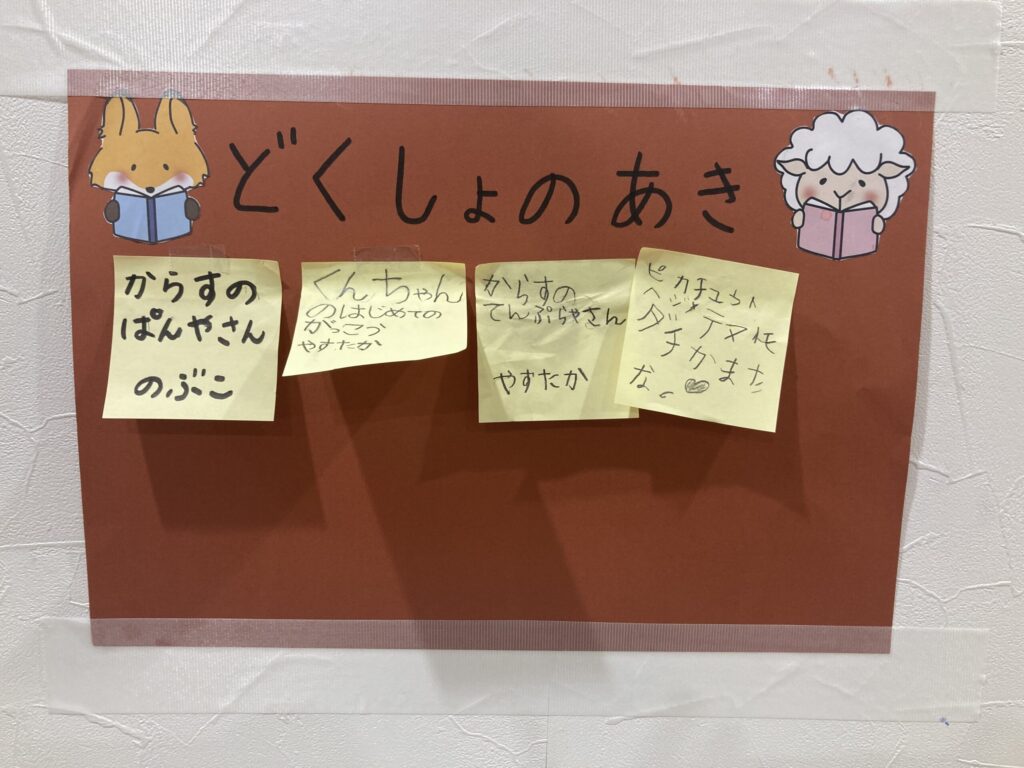 どくしょのあき
からすの
ぱんやさん
のぶこ
くんちゃん
のはじめての
がっこう
やすたか
からすの
てんぷらやさん
やすたか
ピカチュウト
ダチかまた
な。